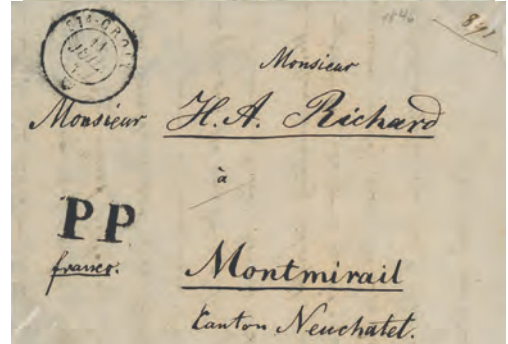 1846
891
STE-CROIX
11
JUIL
Monsieur
Monsieur H. A. Richard
à
PP
franco.
Montmirail
Canton Neuchatel.